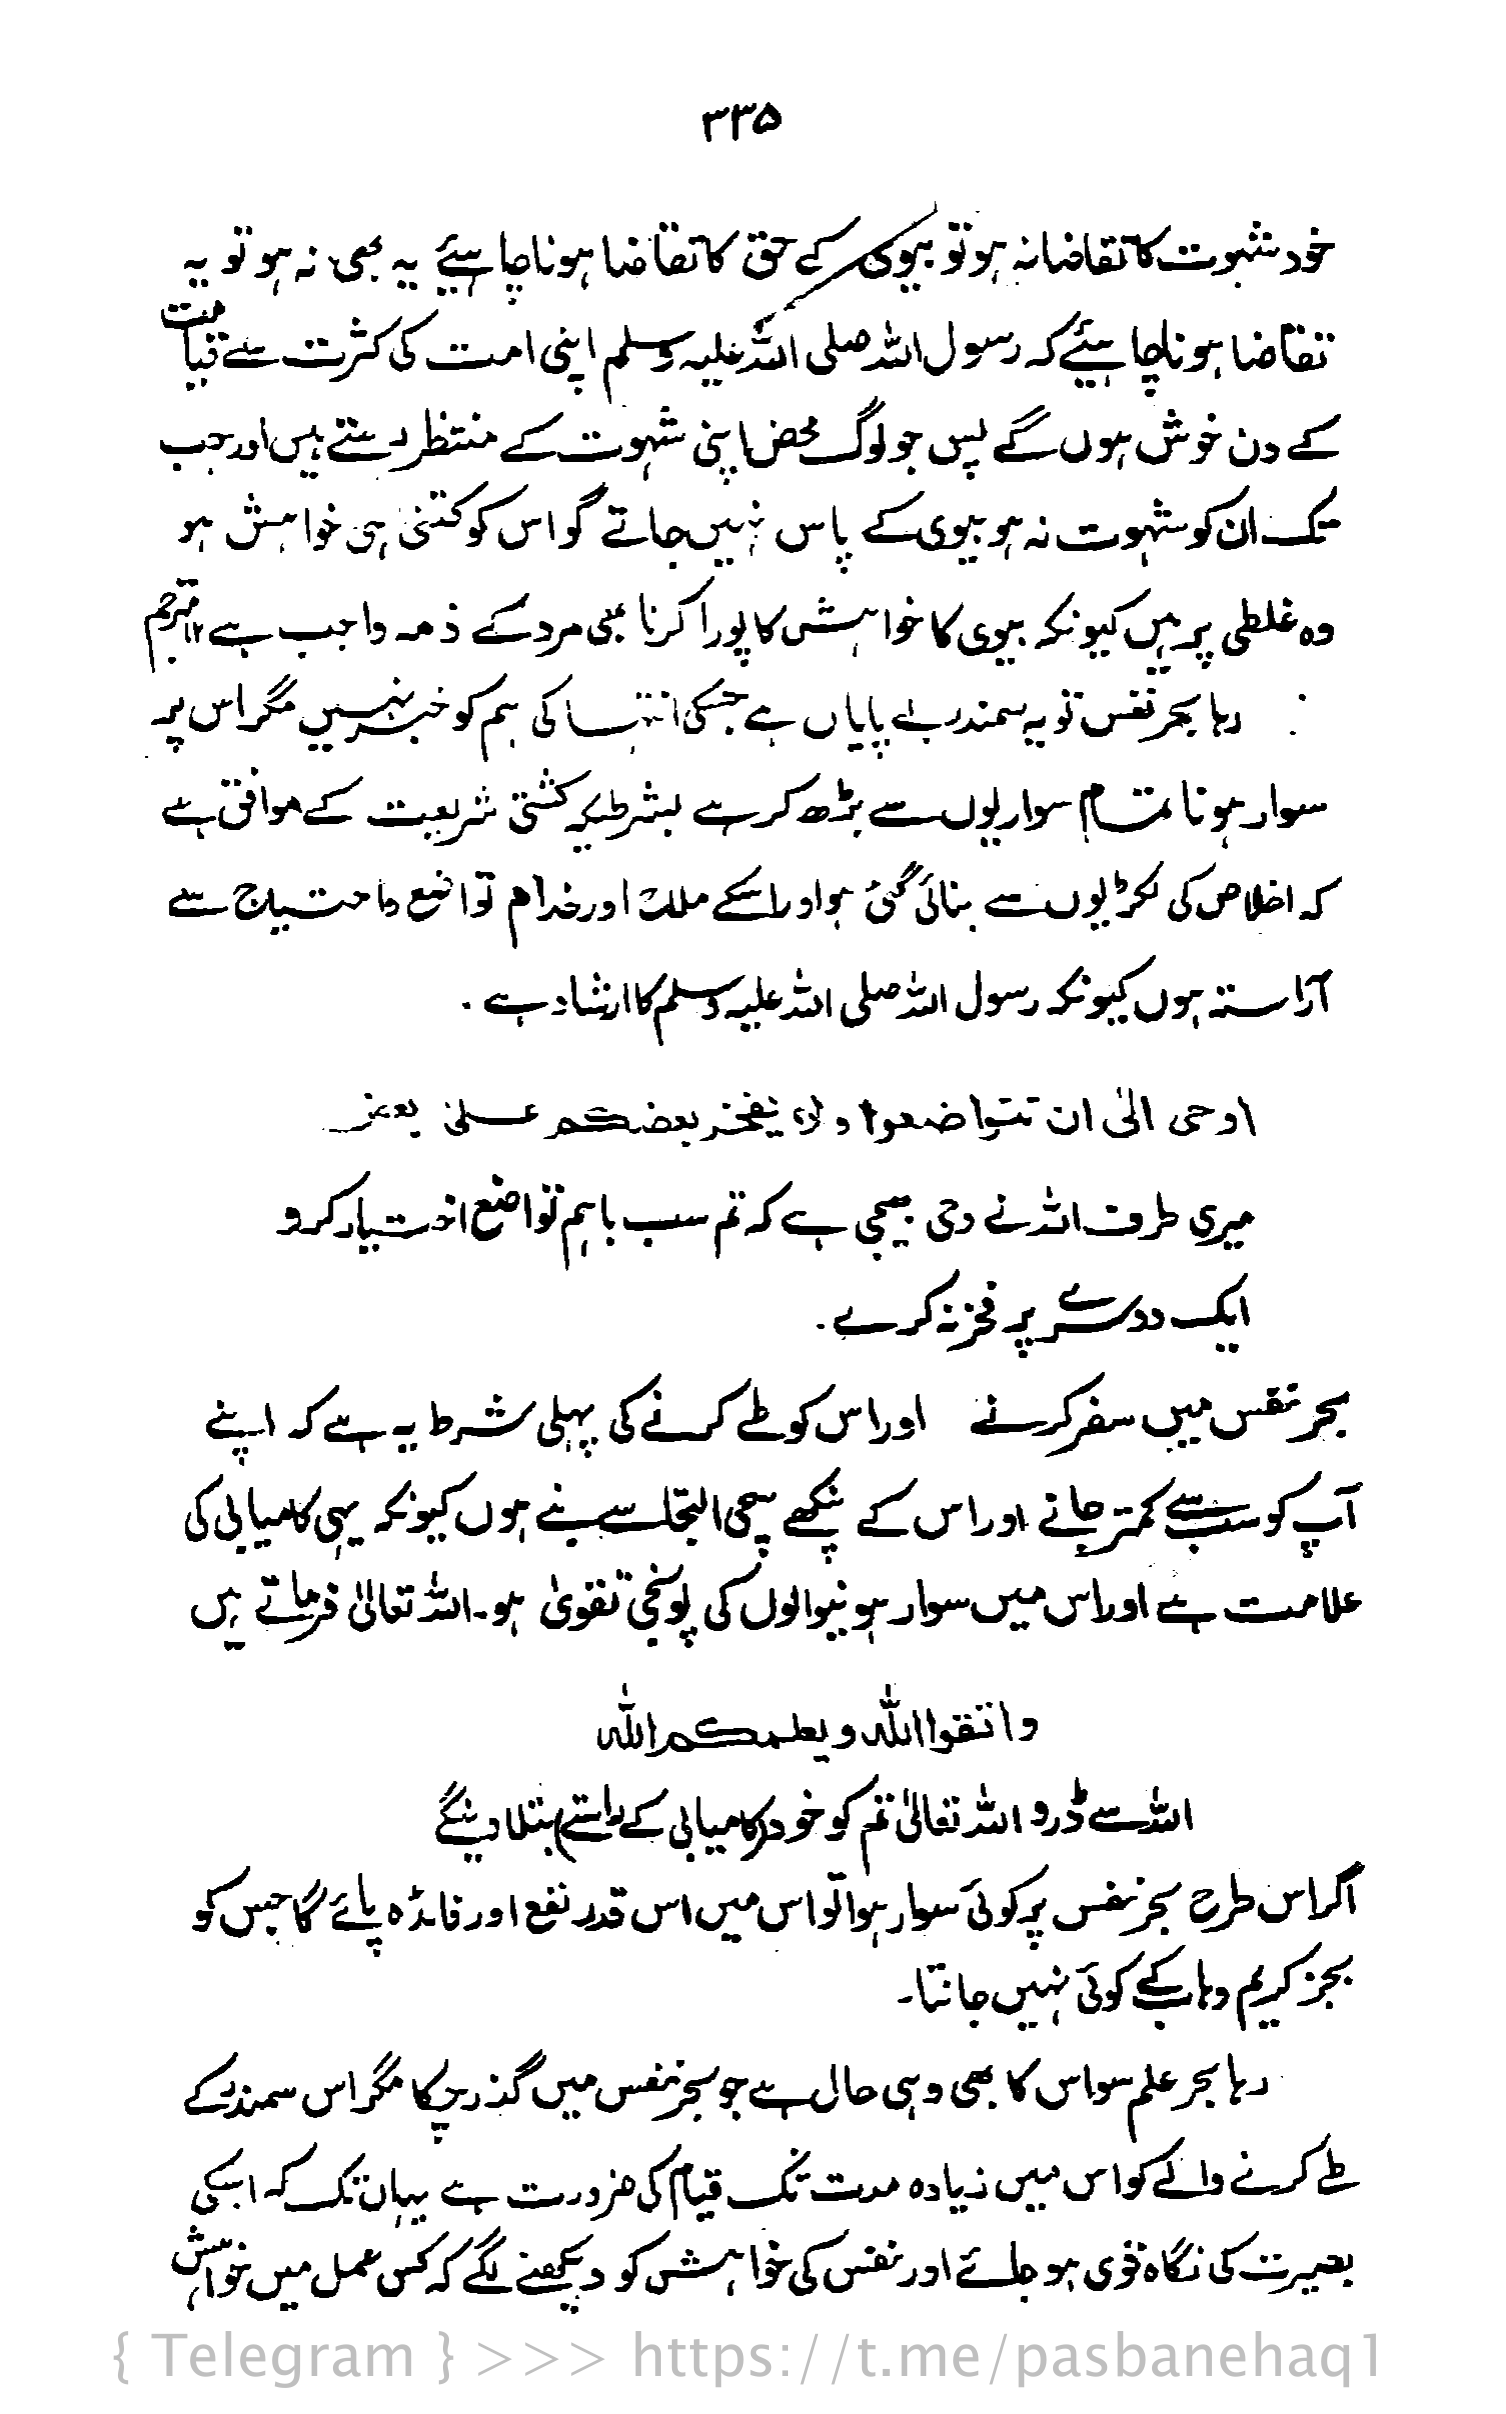 ۳۳۵
خود شہوت کا تقاضا نہ ہو تو بیوی کے حق کا تقاضا ہونا چاہیئے یہ بھی نہ ہو تو یہ
تقاضا ہونا چاہیئے کہ رسول اللہ صلی اللہ علیہ وسلم اپنی امت کی کثرت سے قیامت
کے دن خوش ہوں گے پس جو لوگ محض اپنی شہوت کے منتظر رہتے ہیں اور جب
تک ان کو شہوت نہ ہو بیوی کے پاس نہیں جاتے گو اس کو کتنی ہی خواہش ہو
وہ غلطی پر ہیں کیونکہ بیوی کا خواہش کا پورا کرنا بھی مرد کے ذمہ واجب ہے ۱۲ مترجم
رہا بحر نفس تو یہ سمندر بے پایاں ہے جسکی انتہا کی ہم کو خبر نہیں مگر اس پر
سوار ہونا تمام سواریوں سے بڑھ کر ہے بشرطیکہ کشتی شریعت کے موافق ہے
کہ اخلاص کی لکڑیوں سے بنائی گئی ہو اور اسکے ملاح اور خدام تواضع واحتیاج سے
آراستہ ہوں کیونکہ رسول اللہ صلی اللہ علیہ وسلم کا ارشاد ہے .
اوحی الیٰ ان تتواضعوا ولا یفخر بعضکم علیٰ بعض
میری طرف اللہ نے وحی بھیجی ہے کہ تم سب باہم تواضع اختیار کرو
ایک دوسرے پر فخر نہ کرے .
بحر نفس میں سفر کرنے اور اس کو طے کرنے کی پہلی شرط یہ ہے کہ اپنے
آپ کو سب سے کمتر جانے اور اس کے پنکھے سچی التجا سے بنے ہوں کیونکہ یہی کامیابی کی
علامت ہے اور اس میں سوار ہونیوالوں کی پونجی تقویٰ ہو۔ اللہ تعالیٰ فرماتے ہیں
واتقوا اللہ ویعلمکم اللہ
اللہ سے ڈرو اللہ تعالیٰ تم کو خود (کامیابی کے راستے) بتلا دینگے
اگر اس طرح بحر نفس پر کوئی سوار ہوا تو اس میں اس قدر نفع اور فائدہ پائے گا جس کو
بجز کریم وہاب کے کوئی نہیں جانتا۔
رہا بحر علم سو اس کا بھی وہی حال ہے جو بحر نفس میں گذر چکا مگر اس سمندر کے
طے کرنے والے کو اس میں زیادہ مدت تک قیام کی ضرورت ہے یہاں تک کہ اسکی
بصیرت کی نگاہ قوی ہو جائے اور نفس کی خواہش کو دیکھنے لگے کہ کس عمل میں خواہش
{ Telegram } >>> https://t.me/pasbanehaq1